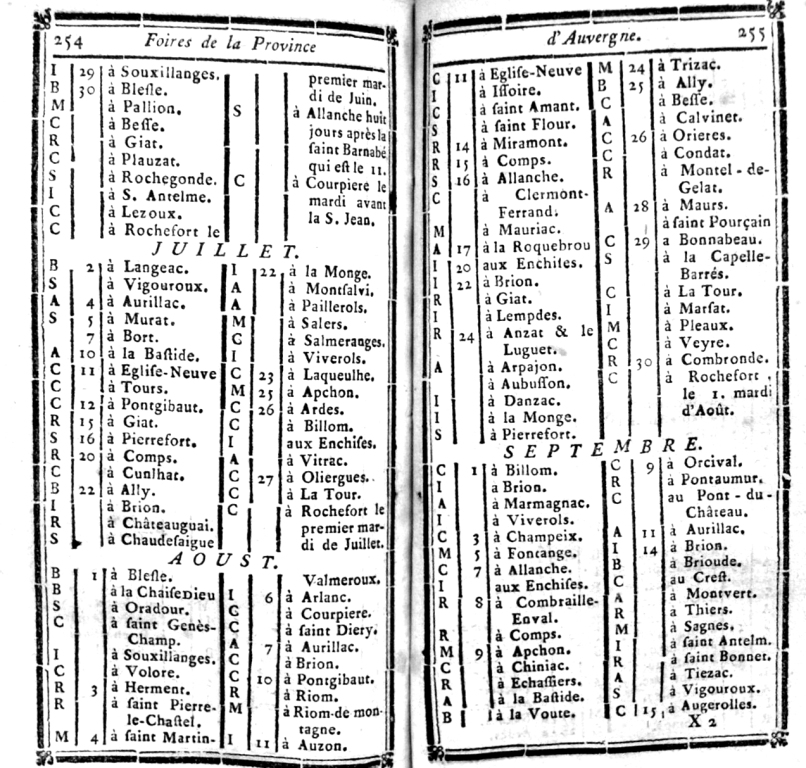 254 Foires de la Province
I 29 à Souxillanges.
B 30 à Blesle.
M à Pallion.
C à Besse.
R à Giat.
C à Plauzat.
S à Rochegonde.
I à S. Antelme.
C à Lezoux.
C à Rochefort le
premier mar-
di de Juin.
S à Allanche huit
jours après la
saint Barnabé
qui est le 11.
C à Courpiere le
mardi avant
la S. Jean.
JUILLET.
B 2 à Langeac.
S à Vigouroux.
A 4 à Aurillac.
S 5 à Murat.
7 à Bort.
A 10 à la Bastide.
C 11 à Eglise-Neuve
C à Tours.
C 12 à Pontgibaut.
R 15 à Giat.
S 16 à Pierrefort.
R 20 à Comps.
C à Cunlhat.
B 22 à Ally.
I à Brion.
R à Châteauguai.
S à Chaudesaigue
I 22 à la Monge.
A à Montsalvi.
A à Paillerols.
M à Salers.
C à Salmeranges.
I à Viverols.
C 23 à Laqueulhe.
M 25 à Apchon.
C 26 à Ardes.
C à Billom.
I aux Enchises.
A à Vitrac.
C 27 à Oliergues.
C à La Tour.
C à Rochefort le
premier mar-
di de Juillet.
AOUST.
B 1 à Blesle.
B à la Chaisedieu
S à Oradour.
C à saint Genès-
Champ.
I à Souxillanges.
C à Volore.
R 3 à Herment.
R à saint Pierre-
le-Chastel.
M 4 à saint Martin-
Valmeroux.
I 6 à Arlanc.
C à Courpiere.
C à saint Diery.
A 7 à Aurillac.
C à Brion.
C 10 à Pontgibaut.
R à Riom.
M à Riom-de mon-
tagne.
I 11 à Auzon.
d'Auvergne. 255
C 11 à Eglise-Neuve
I à Issoire.
C à saint Amant.
S à saint Flour.
R 14 à Miramont.
R 15 à Comps.
S 16 à Allanche.
C à Clermont-
Ferrand.
M à Mauriac.
A 17 à la Roquebrou
I 20 aux Enchises.
I 22 à Brion.
R à Giat.
I à Lempdes.
R 24 à Anzat & le
Luguet.
A à Arpajon.
à Aubusson.
I à Danzac.
I à la Monge.
S à Pierrefort.
M 24 à Trizac.
B 25 à Ally.
C à Besse.
A à Calvinet.
C 26 à Orieres.
C à Condat.
R à Montel-de-
Gelat.
A 28 à Maurs.
à saint Pourçain
C 29 a Bonnabeau.
S à la Capelle-
Barrés.
C à La Tour.
I à Marsat.
M à Pleaux.
C à Veyre.
R 30 à Combronde.
C à Rochefort,
le 1. mardi
d'Août.
SEPTEMBRE.
C 1 à Billom.
I a Brion.
A à Marmagnac.
I à Viverols.
C 3 à Champeix.
M 5 à Fontange.
C 7 à Allanche.
I aux Enchises.
R 8 à Combraille-
Enval.
R à Comps.
M 9 à Apchon.
C à Chiniac.
R à Echassiers.
A à la Bastide.
B à la Voute.
C 9 à Orcival.
R à Pontaumur.
C au Pont-du-
Château.
A 11 à Aurillac.
I 14 à Brion.
B à Brioude.
C au Crest.
A à Montvert.
R à Thiers.
M à Sagnes.
I à saint Antelm.
R à saint Bonnet.
A à Tiezac.
S à Vigouroux.
C 15 à Augerolles.
X 2